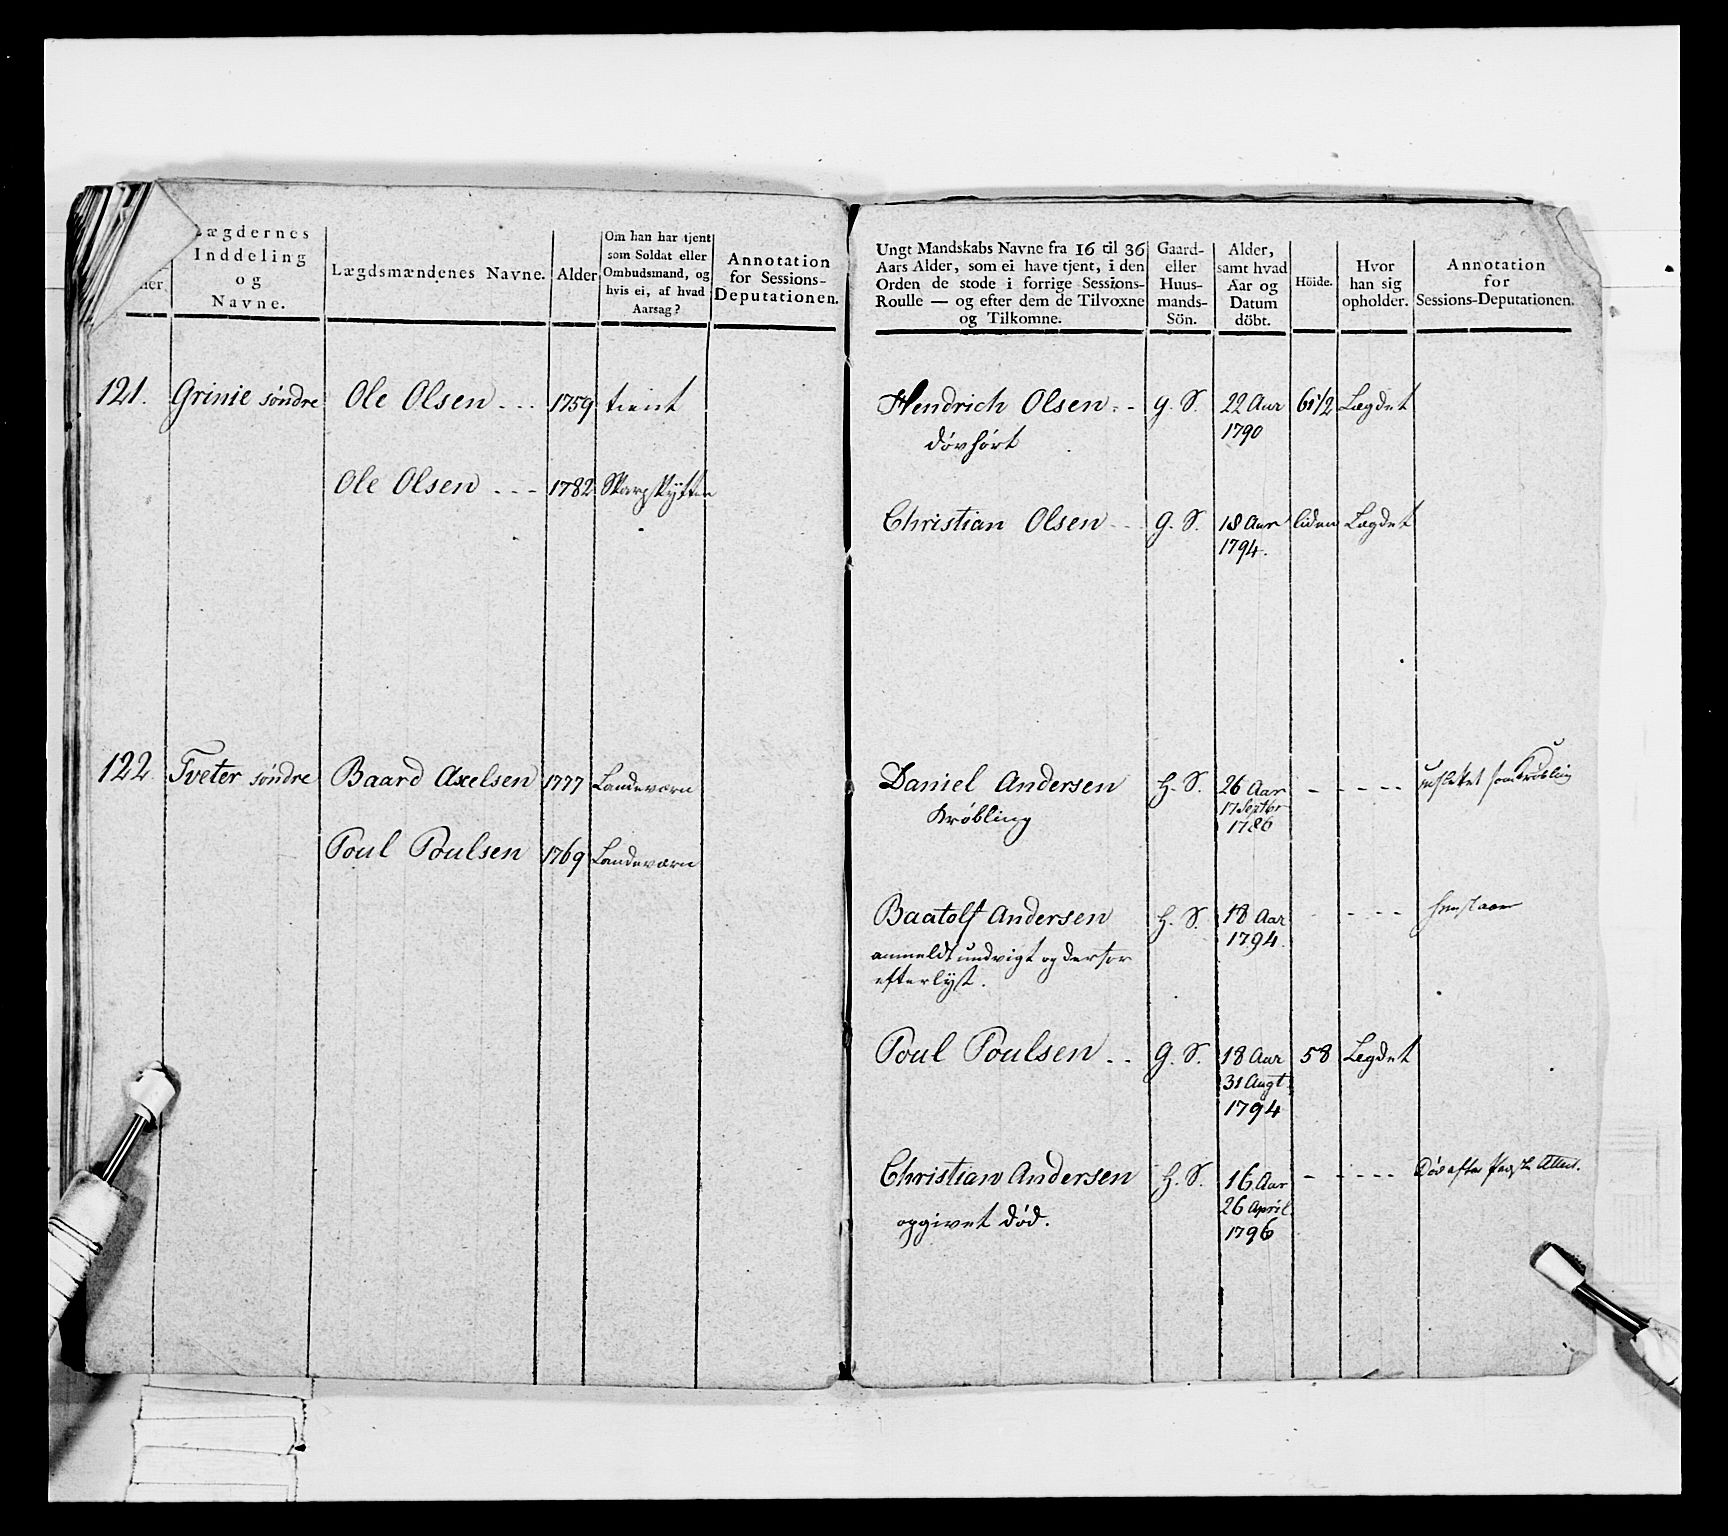 ægdernes
Inddeling
og
Navne.
mer.
Lægdsmændenes Navne.
Alder
Om han har tjent
som Soldat eller
Ombudsmand, og
hvis ei, af hvad
Aarsag?
Annotation
for Sessions-
Deputationen.
121. Grinie søndre Ole Olsen - - - 1759 tient
Ole Olsen - - - 1782 Skarpskytter
122 Tveter søndre Baard Axelsen 1777 Landeværn
Poul Poulsen 1769 Landeværn
Ungt Mandskabs Navne fra 16 til 36
Aars Alder, som ei have tjent, i den
Orden de stode i forrige Sessions-
Roulle — og efter dem de Tilvoxne
og Tilkomne.
Gaard-
eller
Huus-
mands-
Sön.
Alder,
samt hvad
Aar og
Datum
döbt.
Höide.
Hvor
han sig
opholder.
Annotation
for
Sessions-Deputationen.
Hendrich Olsen - - g. S. 22 Aar 61 1/2 Lægdet
døvhørt 1790
Christian Olsen - - g. S. 18 Aar liden Lægdet
1794.
Daniel Andersen H. S. 26 Aar - - - - -
Krøbling 17 Septbr
1786
Baatolf Andersen H. S. 18 Aar - - - -
anmeldt undvigt og derfor 1794.
efterlyst.
Poul Poulsen - - g. S. 18 Aar 58 Lægdet
31 Augt
1794
Christian Andersen H. S. 16 Aar - - - - - Død efter Attest.
26 April
opgivet død. 1796